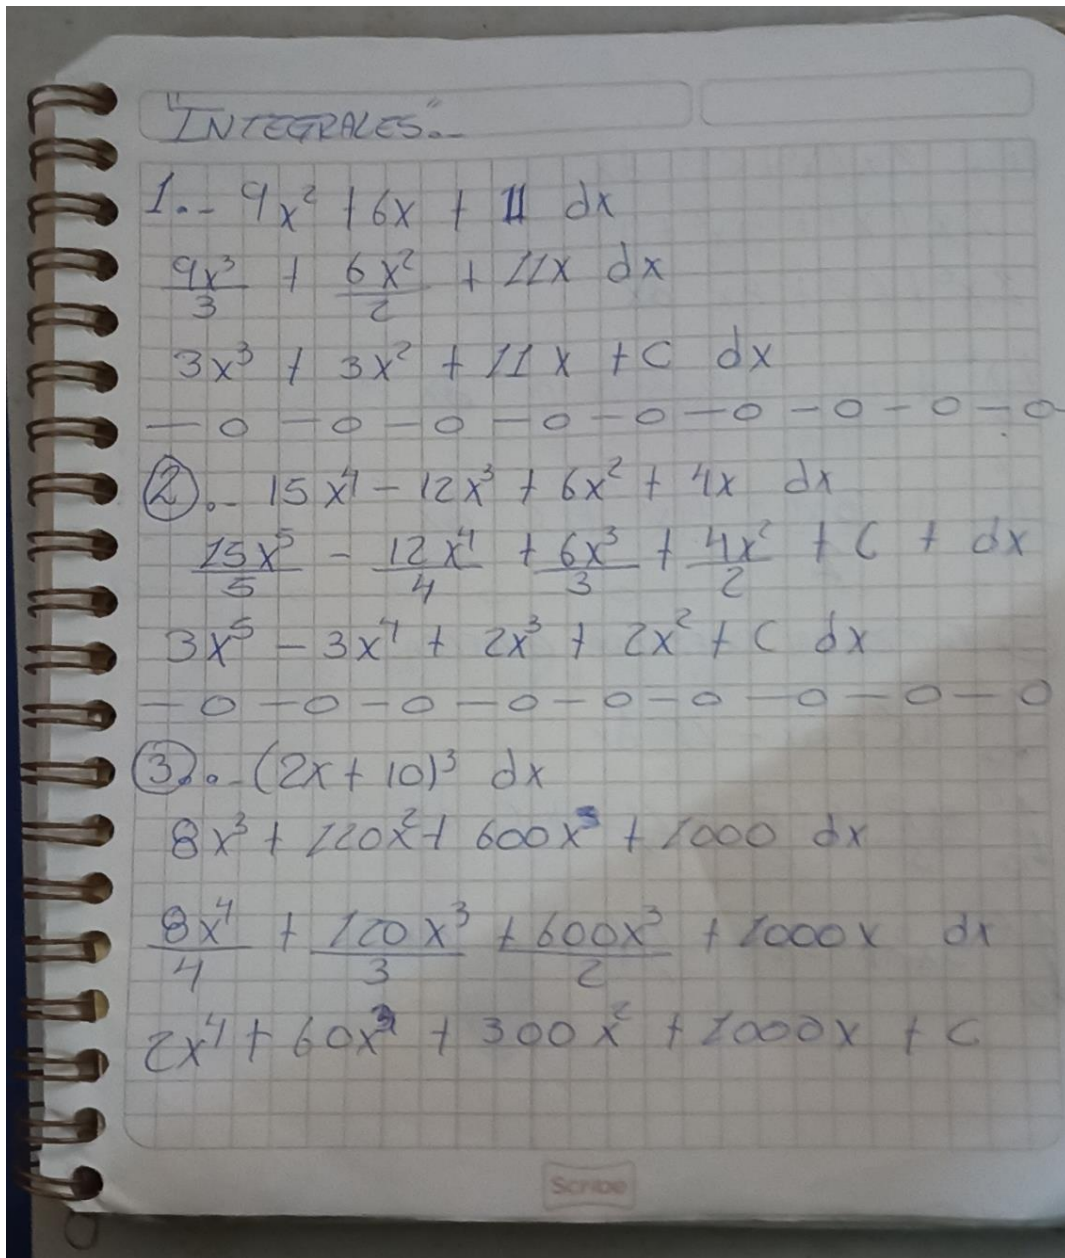 "INTEGRALES"..
1.- 9x² + 6x + 11 dx
9x³/3 + 6x²/2 + 11x dx
3x³ + 3x² + 11x + C dx
— o — o — o — o — o — o — o — o — o
2.- 15x⁴ - 12x³ + 6x² + 4x dx
15x⁵/5 - 12x⁴/4 + 6x³/3 + 4x²/2 + C + dx
3x⁵ - 3x⁴ + 2x³ + 2x² + C dx
— o — o — o — o — o — o — o — o — o
3.- (2x + 10)³ dx
8x³ + 120x² + 600x³ + 1000 dx
8x⁴/4 + 120x³/3 + 600x³/2 + 1000x dx
2x⁴ + 60x³ + 300x² + 1000x + C
Scribe